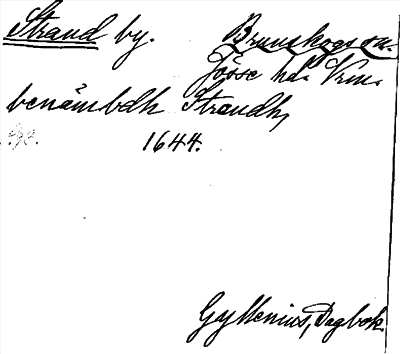 Strand by. Brunskogs sn.
Jösse hd. Vrml.
benämbdh Strandh,
1644.
Gyllenius, Dagbok.